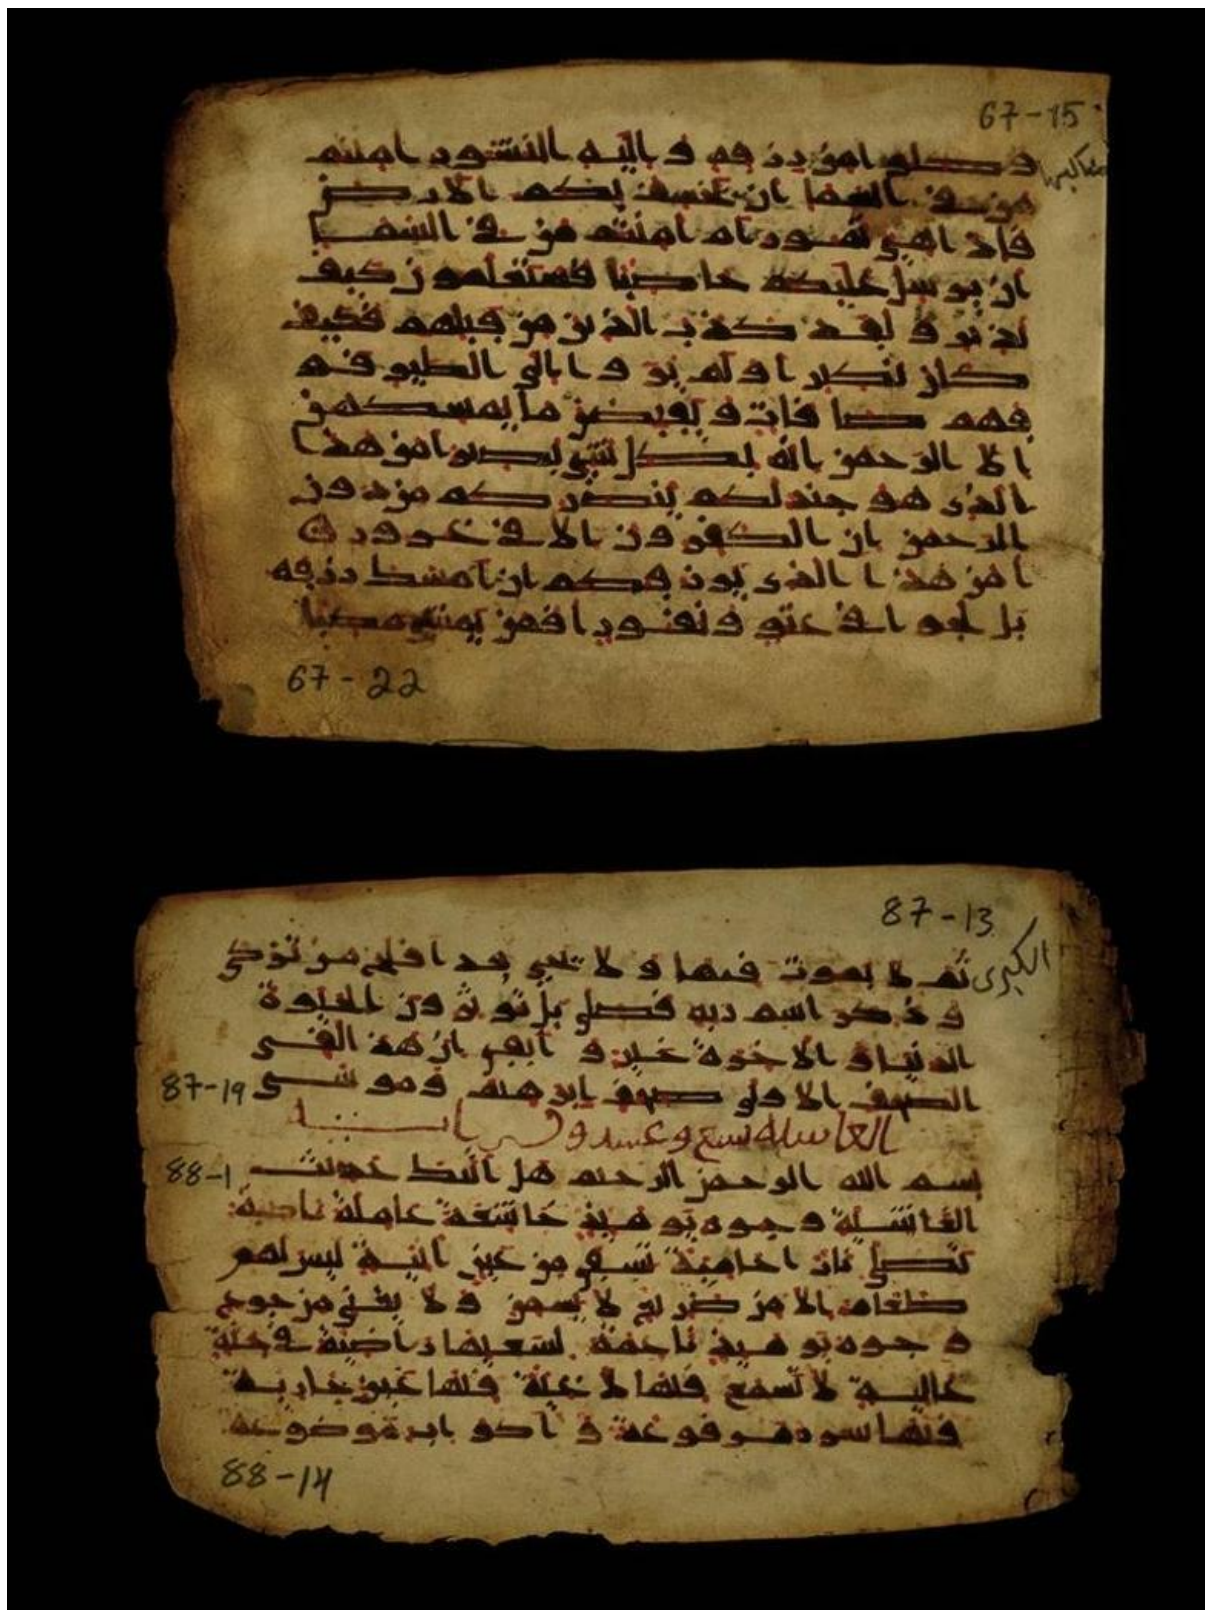 67-15
مناكبها
وكلوا من رزقه واليه النشور امنتم
من في السما ان يخسف بكم الارض
فاذا هي تمور ام امنتم من في السما
ان يرسل عليكم حاصبا فستعلمون كيف
نذير ولقد كذب الذين من قبلهم فكيف
كان نكير اولم يروا الى الطير فو
قهم صافات ويقبضن ما يمسكهن
الا الرحمن انه بكل شي بصير امن هذا
الذي هو جند لكم ينصركم من دون
الرحمن ان الكفرون الا في غرور
امن هذا الذي يرزقكم ان امسك رزقه
بل لجوا في عتو ونفور افمن يمشي مكبا
67-22
87-13
الكبرى
ثم لا يموت فيها ولا يحيى قد افلح من تزكى
وذكر اسم ربه فصلى بل توثرون الحيوة
الدنيا والاخرة خير وابقى ان هذا لفي
الصحف الاولى صحف ابرهيم وموسى
87-19
الغاشيه ست وعشرون اية
بسم الله الرحمن الرحيم هل اتيك حديث
88-1
الغاشية وجوه يومئذ خاشعة عاملة ناصبة
تصلى نارا حامية تسقى من عين انية ليس لهم
طعام الا من ضريع لا يسمن ولا يغني من جوع
وجوه يومئذ ناعمة لسعيها راضية في جنة
عالية لا تسمع فيها لاغية فيها عين جارية
فيها سرر مرفوعة واكواب موضوعة
88-14